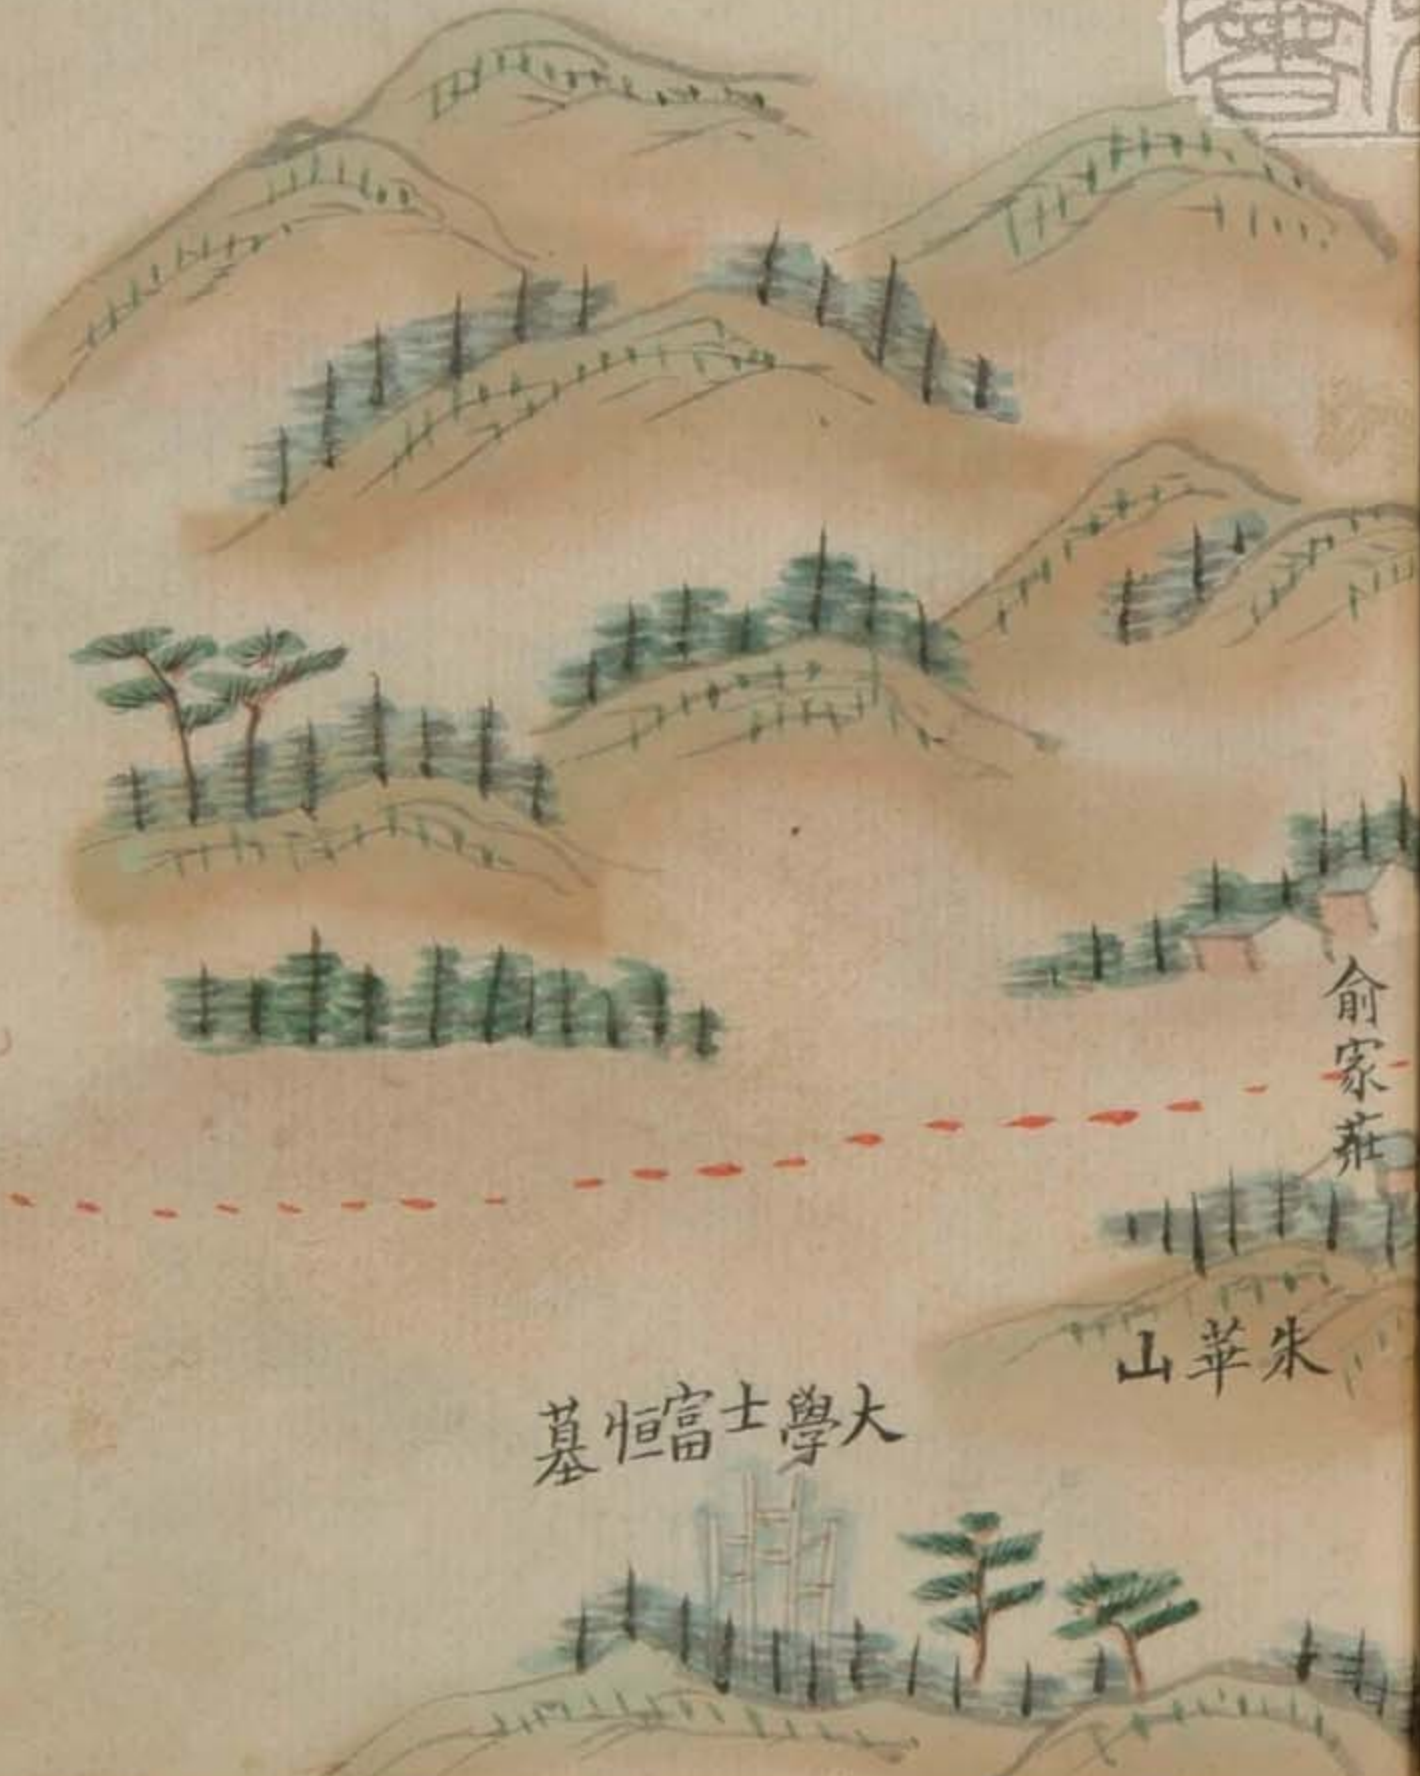 俞家莊
朱華山
大學士富恒墓